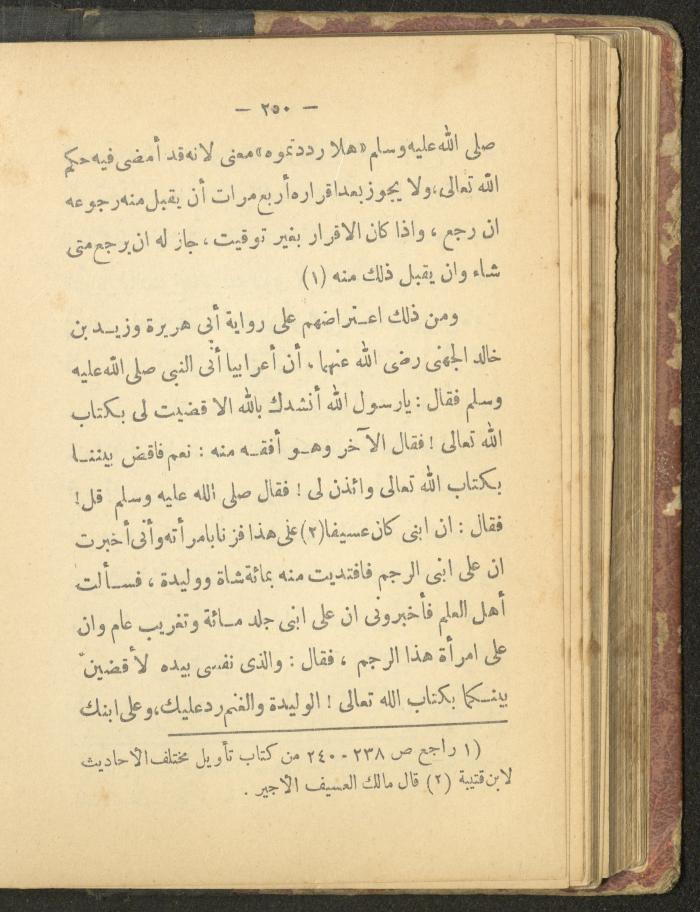 — ٢٥٠ —
صلى الله عليه وسلم «هلا رددتموه» معنى لانه قد أمضى فيه حكم
الله تعالى، ولا يجوز بعد اقراره أربع مرات أن يقبل منه رجوعه
ان رجع ، واذا كان الاقرار بغير توقيت ، جاز له ان يرجع متى
شاء وان يقبل ذلك منه (١)
ومن ذلك اعتراضهم على رواية أبى هريرة وزيد بن
خالد الجهنى رضى الله عنهما ، أن أعرابيا أتى النبى صلى الله عليه
وسلم فقال : يارسول الله أنشدك بالله الا قضيت لى بكتاب
الله تعالى ! فقال الآخر وهو أفقه منه : نعم فاقض بيننا
بكتاب الله تعالى وائذن لى ! فقال صلى الله عليه وسلم قل !
فقال : ان ابنى كان عسيفا (٢) على هذا فزنا بامرأته وأنى أخبرت
ان على ابنى الرجم فافتديت منه بمائة شاة ووليدة ، فسألت
أهل العلم فأخبرونى ان على ابنى جلد مائة وتغريب عام وان
على امرأة هذا الرجم ، فقال : والذى نفسى بيده لأقضين
بينكما بكتاب الله تعالى ! الوليدة والغنم رد عليك، وعلى ابنك
(١ راجع ص ٢٣٨ - ٢٤٠ من كتاب تأويل مختلف الأحاديث
لابن قتيبة (٢) قال مالك العسيف الأجير .